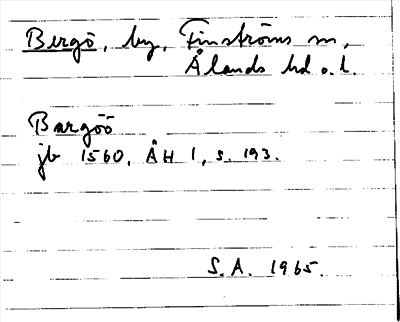 Bergö, by, Finströms sn,
Ålands hd o. l.
Bargöö
jb 1560, ÅH 1, s. 193.
S.A. 1965.